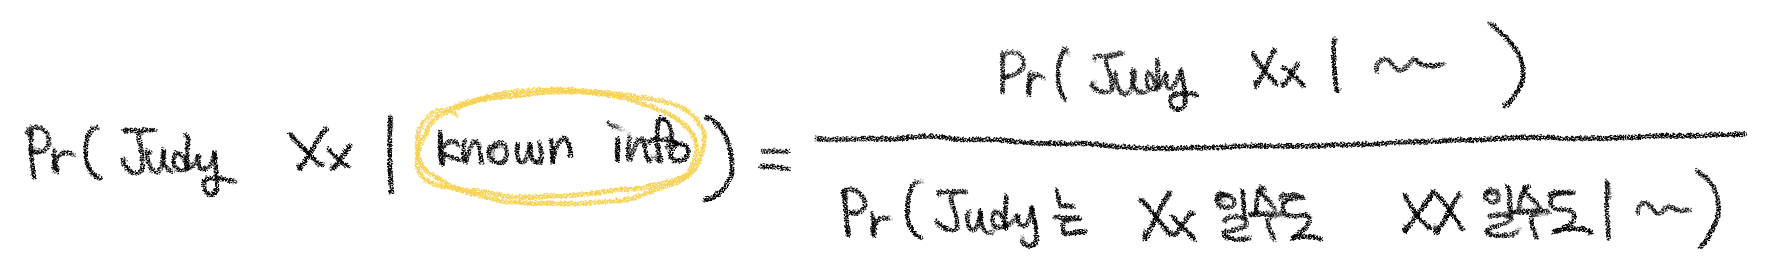 Pr( Judy Xx | known info ) =
Pr( Judy Xx | ~ )
Pr( Judy는 Xx 일수도 XX 일수도 | ~ )